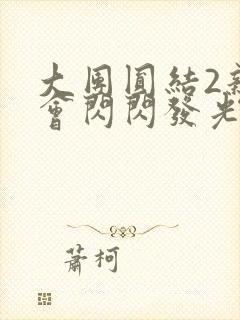 大團圓結2
會閃閃發光
蕭柯